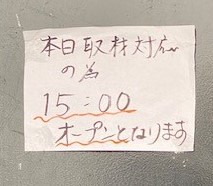 本日取材対応
の為
15:00
オープンとなります